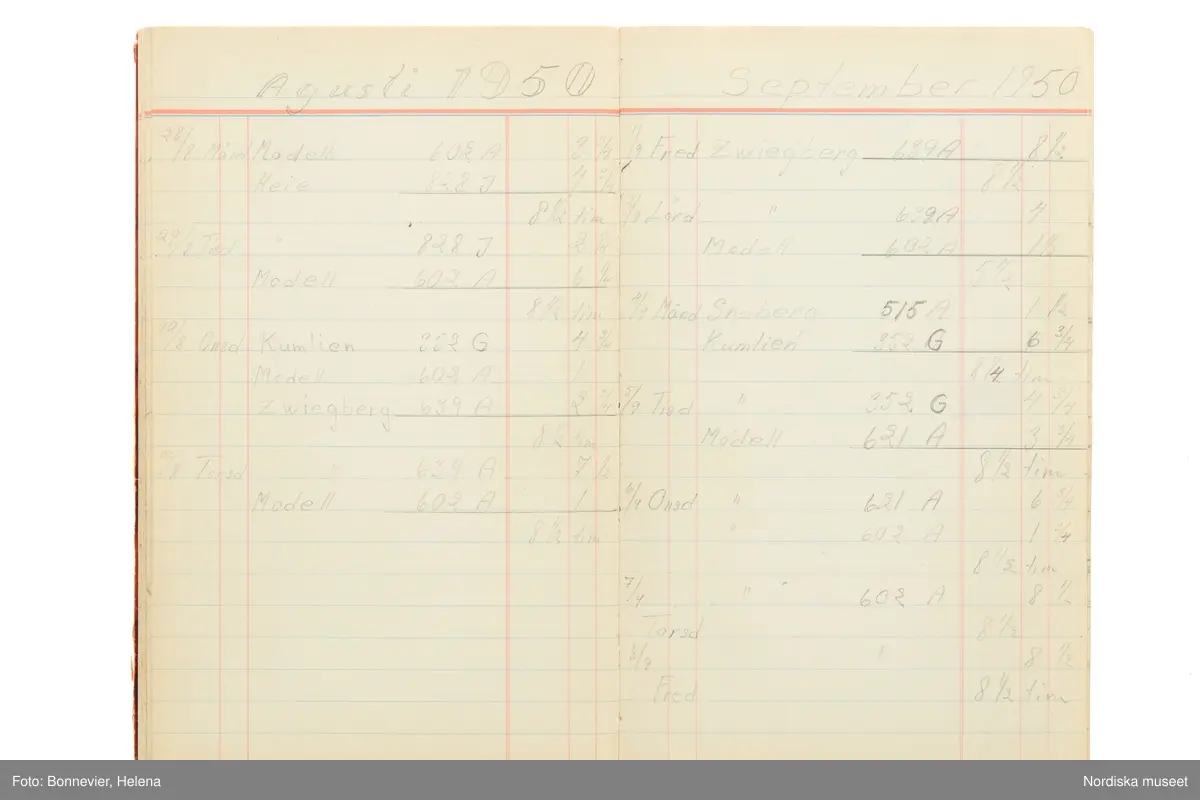 Agusti 1950
28/8 Mån Modell 602 A 2
Heie 828 J 4 1/2
8 1/2 tim
29/8 Tisd " 828 J 2
Modell 602 A 6 1/2
8 1/2 tim
Onsd Kumlien 352 G 4 3/4
Modell 602 A 1
Zwiegberg 639 A 2 3/4
8 1/2 tim
Torsd " 639 A 7 1/2
Modell 602 A 1
8 1/2 tim
September 1950
1/9 Fred Zwiegberg 639 A 8 1/2
8 1/2
Lörd " 639 A 4
Modell 602 A 1 1/2
5 1/2
4/9 Månd 515 A 1 1/2
Kumlien 352 G 6 3/4
8 1/4 tim
5/9 Tisd " 352 G 4 3/4
Modell 621 A 3 3/4
8 1/2 tim
6/9 Onsd " 621 A 6
" 602 A 1
8 1/2 tim
7/9 " " 602 A 8 1/2
Torsd 8 1/2
8/9 " 8 1/2
Fred 8 1/2 tim
Foto: Bonnevier, Helena
Nordiska museet